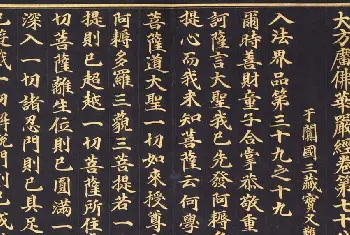 大方廣佛華嚴經卷第七十
于闐國三藏實叉難
入法界品第三十九之十九
爾時善財童子合掌恭敬重
訶薩言大聖我已先發阿耨
提心而我未知菩薩云何學
菩薩道大聖一切如來授尊
阿耨多羅三藐三菩提若一
提則已超越一切菩薩所住
切菩薩離生位則已圓滿一
深入一切諸忍門則已具足
已遊戲一切解脫門則已成